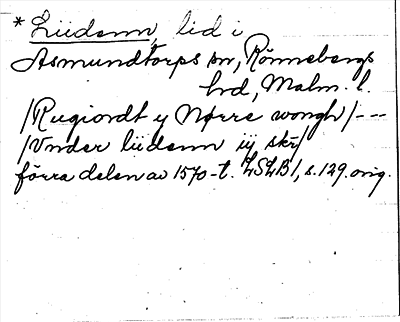 * Liidenn, lid i
Asmundtorps sn, Rönnebergs
hd, Malm. l.
/Rugiordt y Nørre wongh/---
/Vnder liidenn iij skr/
förra delen av 1570-t. LSLB1, s. 129. orig.